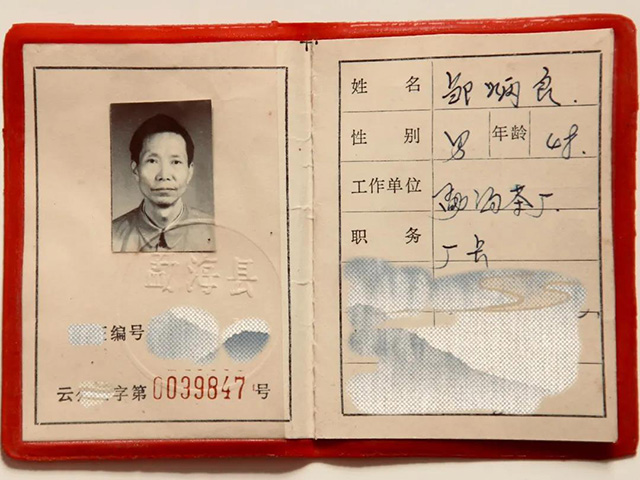 勐海县
编号
云 字第0039847号
姓 名 邹炳良.
性 别 男 年龄 4
工作单位 勐海茶厂.
职 务 厂长